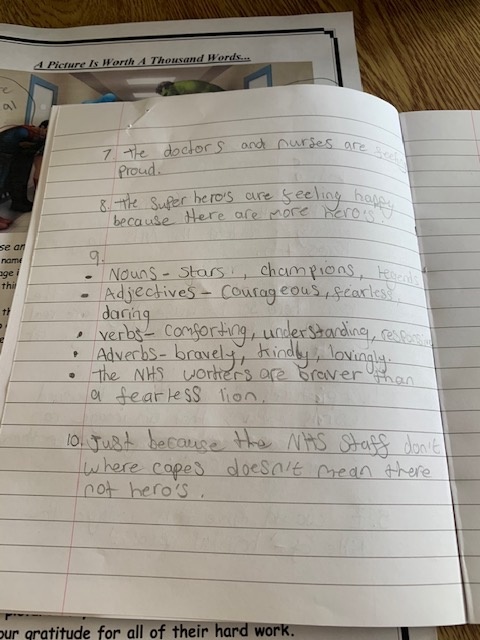 A Picture Is Worth A Thousand Words...
al
7. the doctors and nurses are
Proud.
8. the super hero's are feeling happy
because there are more hero's
9.
• Nouns - stars, champions,
• Adjectives - courageous, fearless,
daring
• verbs - comforting, understanding,
• Adverbs - bravely, kindly, lovingly.
• the NHS workers are braver than
a fearless lion.
10. Just because the NHS staff don't
where capes doesn't mean there
not hero's.
our gratitude for all of their hard work.